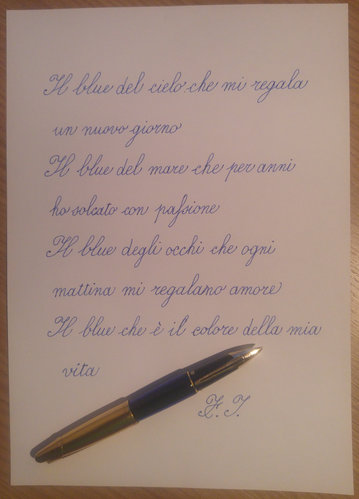 Il blue del cielo che mi regala
un nuovo giorno
Il blue del mare che per anni
ho solcato con passione
Il blue degli occhi che ogni
mattina mi regalano amore
Il blue che è il colore della mia
vita
F. I.